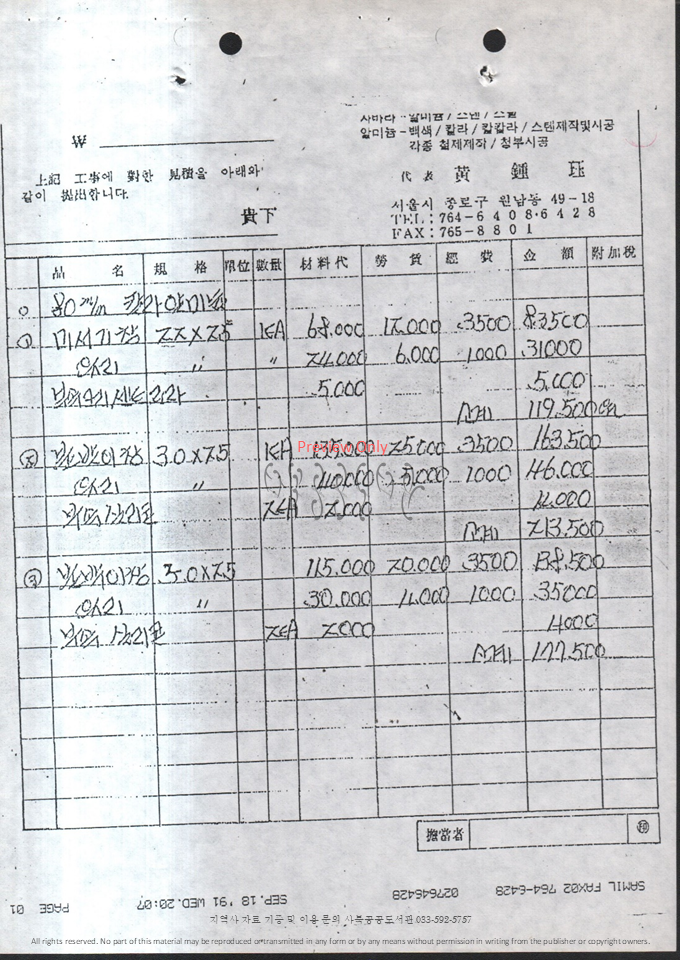 샤바라 - 알미늄 / 스텐 / 스틸
알미늄 - 백색 / 칼라 / 칼칼라 / 스텐제작및시공
각종 철제제작 / 청부시공
上記 工事에 對한 見積을 아래와
같이 提出합니다.
貴下
代表 黃 鍾 珏
서울시 종로구 원남동 49-18
TEL : 764-6408·6428
FAX : 765-8801
品 名 規 格 單位 數量 材料代 勞 賃 經 費 金 額 附加稅
① 미서기창 68.000 12.000 3500 83500
유리 〃 〃 24.000 6.000 1000 31000
5.000 5.000
소계 119.500
② 3.0×2.5 135.000 25.000 3500 163.500
유리 〃 40.000 5.000 1000 46.000
2EA 2.000 4.000
소계 213.500
③ 2.0×2.5 115.000 20.000 3500 138.500
유리 〃 30.000 4.000 1000 35000
2EA 2000 4000
소계 177.500
Preview Only
SAMIL FAX02 764-6428 027646428 SEP.18 '91 WED.20:07 PAGE 01
지역사 자료 기증 및 이용 문의 사북공공도서관 033-592-5757
All rights reserved. No part of this material may be reproduced or transmitted in any form or by any means without permission in writing from the publisher or copyright owners.